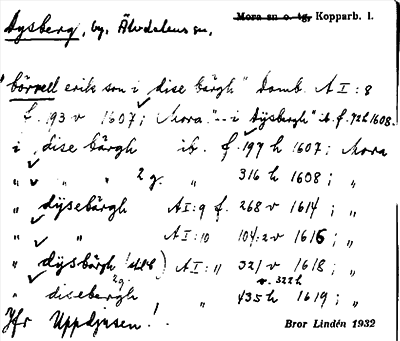 Dysberg, by, Älvdalens sn, Mora sn o. tg, Kopparb. l.
"börvell erik son i dise bärgh" Domb. A I : 8
f. 193 v 1607; Mora. "-- i Dÿsbergh" ib. f. 72 h 1608.
i dise bärgh ib. f. 197 h 1607; Mora
" " " 2 g. " 316 h 1608; "
" dÿsebärgh A I : 9 f. 268 v 1614; "
" " A I : 10 104:2 v 1616; "
" dÿsbärgh A I : 11 321 v 1618; "
2 g. v. 322 h
" disebergh, " 435 h 1619; "
Jfr Uppdjusen!
Bror Lindén 1932